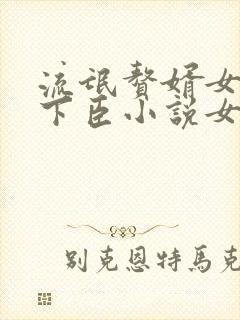 流氓赘婿女
下臣小説女
别克恩特馬克